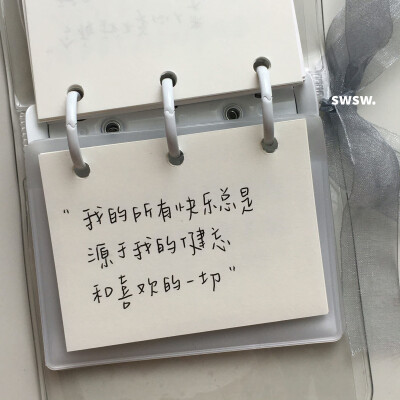 swsw.
"我的所有快乐总是
源于我的健忘
和喜欢的一切"